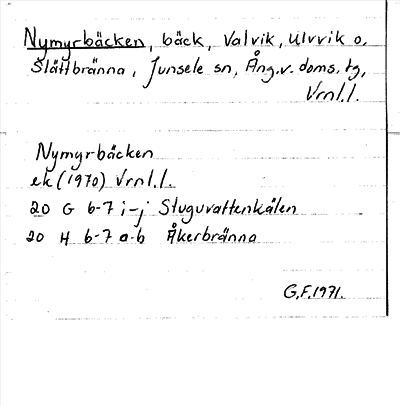 Nymyrbäcken, bäck, Valvik, Ulvvik o.
Slättbränna, Junsele sn, Ång.v. doms. tg,
Vrnl.l.
Nymyrbäcken
ek (1970) Vrnl.l.
20 G 6-7 i-j Stuguvattenkälen
20 H 6-7 a-b Åkerbränna
G.F.1971.